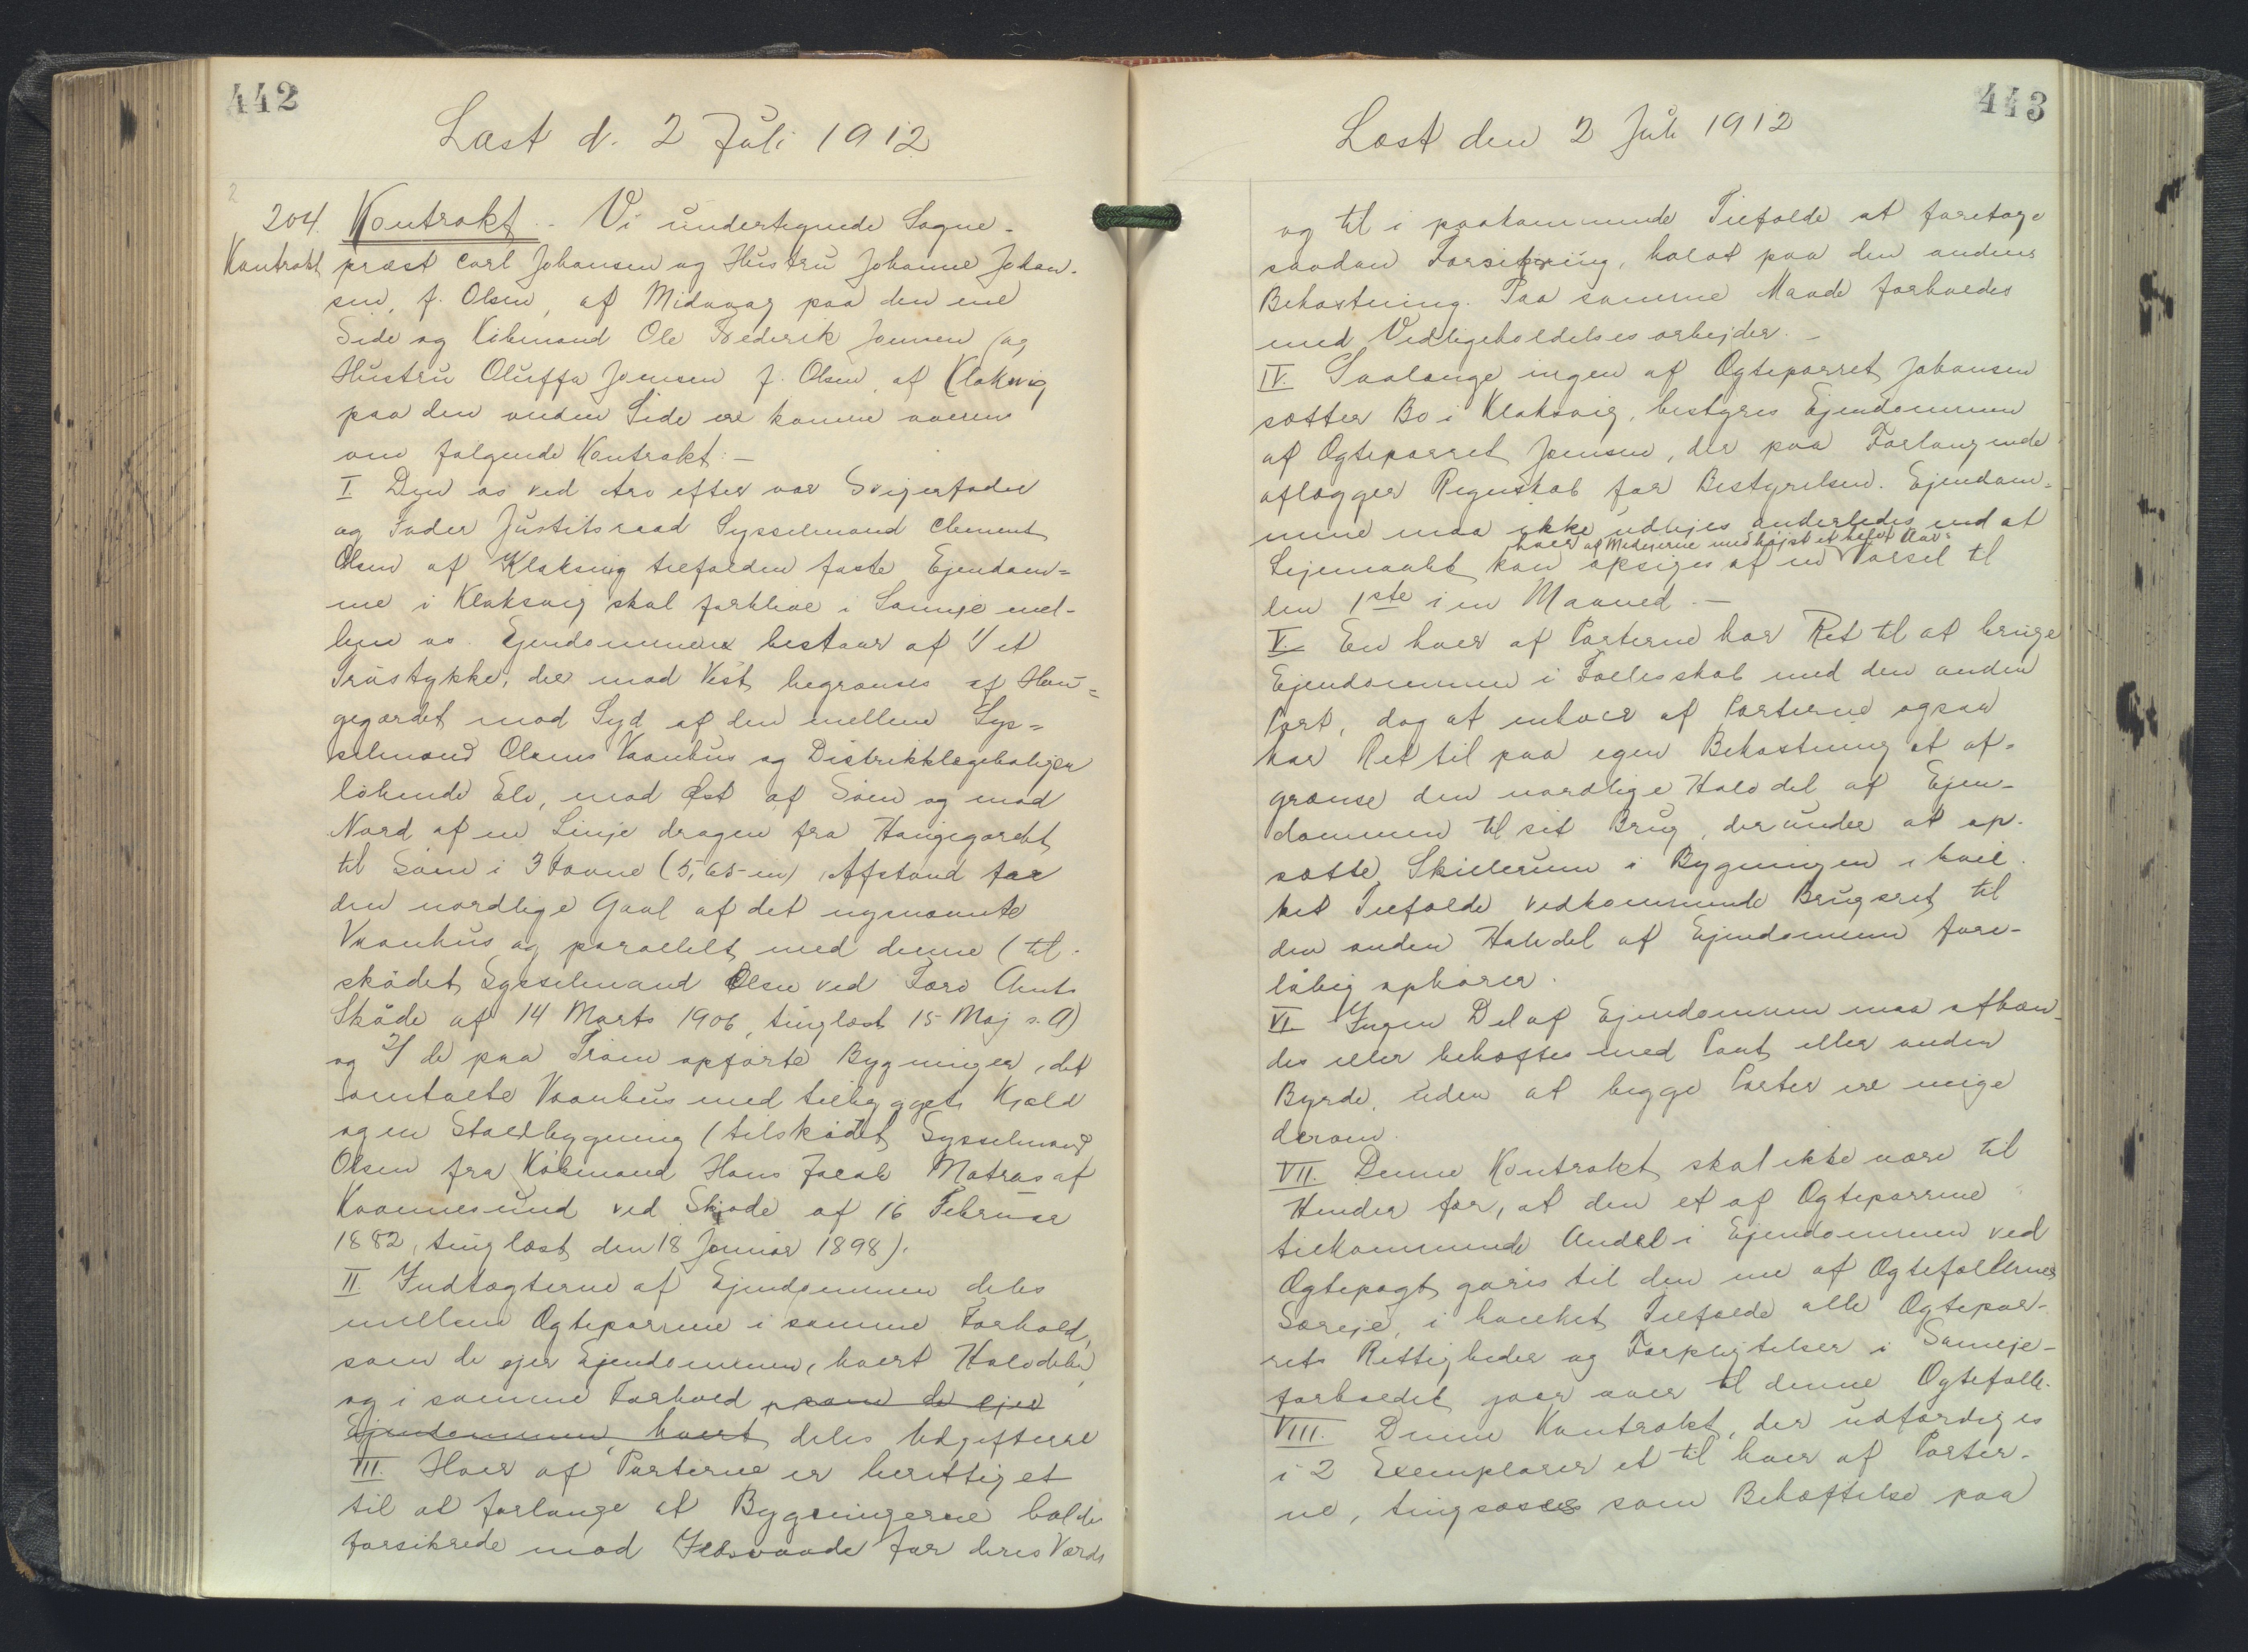 442
Læst d. 2 Juli 1912
204. Kontrakt.- Vi undertegnede Sogne-
Kontrakt præst Carl Johansen og Hustru Johanne Johan-
sen, f. Olsen, af Midvaag paa den ene
Side og Købmand Ole Frederik Joensen (og
Hustru Oluffa Joensen f. Olsen, af Klaksvig
paa den anden Side ere komne overens
om følgende Kontrakt:-
I Den os ved Arv efter vor Svigerfader
og Fader Justitsraad Sysselmand Clement
Olsen af Klaksvig tilfalden faste Ejendom=
me i Klaksvig skal forblive i Sameje mel-
lem os. Ejendommene bestaar af 1/ et
Træstykke, der mod Vest begrænses af Hau=
gegærdet mod Syd af den mellem Sys=
selmand Olsens Vaanhus og Distriktslægeboligen
løbende Elv, mod Øst af Søen og mod
Nord af en Linje dragen fra Haugegærdet
til Søen i 3 Favne (5,65 m) Afstand fra
den nordlige Gavl af det nysnævnte
Vaanhus og parallelt med denne (til-
skødet Sysselmand Olsen ved Færø Amts
Skøde af 14 Marts 1906, tinglæst 15 Maj s. A)
og 2/ de paa Træen opførte Bygninger, det
omtalte Vaanhus med tilbygget Kjeld
og en Staldbygning (tilskødet Sysselmand
Olsen fra Købmand Hans Jacob Matras af
Kvannesund ved Skjøde af 16 Februar
1882, tinglæst den 18 Januar 1898).
II. Indtægterne af Ejendommen deles
mellem Ægteparrene i samme Forhold,
som de ejer Ejendommen, hvert Halvdelen,
og i samme Forhold, som de ejer
Ejendommen, hvert deles Udgifterne
III. Hver af Parterne er berettiget
til at forlange at Bygningerne holdes
forsikrede mod Ildsvaade for deres Værdi
443
Læst den 2 Juli 1912
og til i paakommende Tilfælde at foretage
saadan Forsikring, halvt paa den andens
Bekostning. Paa samme Maade forholdes
med Vedligeholdelsesarbejder.-
IV. Saalænge ingen af Ægteparret Johansen
sætter Bo i Klaksvig, bestyres Ejendommen
af Ægteparret Joensen, der paa Forlangende
aflægger Regnskab for Bestyrelsen. Ejendom=
mene maa ikke udlejes anderledes end at
hver af Medejerne med højst et halvt Aars
Lejemaalet kan opsiges af en Varsel til
den 1ste i en Maaned.-
V. En hver af Parterne har Ret til at bruge
Ejendommen i Fællesskab med den anden
Part, dog at enhver af Parterne ogsaa
har Ret til paa egen Bekostning at af-
grænse den nordlige Halvdel af Ejen-
dommen til sit Brug, derunder at op-
sætte Skillerum i Bygningen i hvil-
ket Tilfælde vedkommende Brugsret til
den anden Halvdel af Ejendommen fore-
løbig ophører.
VI. Ingen Del af Ejendommen maa afhæn-
des eller behæftes med Pant eller anden
Byrde, uden at begge Parter ere enige
derom.
VII. Denne Kontrakt skal ikke være til
Hinder for, at den et af Ægteparrene
tilkommende Andel i Ejendommen ved
Ægtepagt gøres til den ene af Ægtefællernes
Særeje, i hvilket Tilfælde alle Ægtepar-
rets Rettigheder og Forpligtelser i Sameje-
forholdet gaar over til denne Ægtefælle.
VIII. Denne Kontrakt, der udfærdiges
i 2 Exemplarer et til hver af Parter-
ne, tinglæses som Behæftelse paa